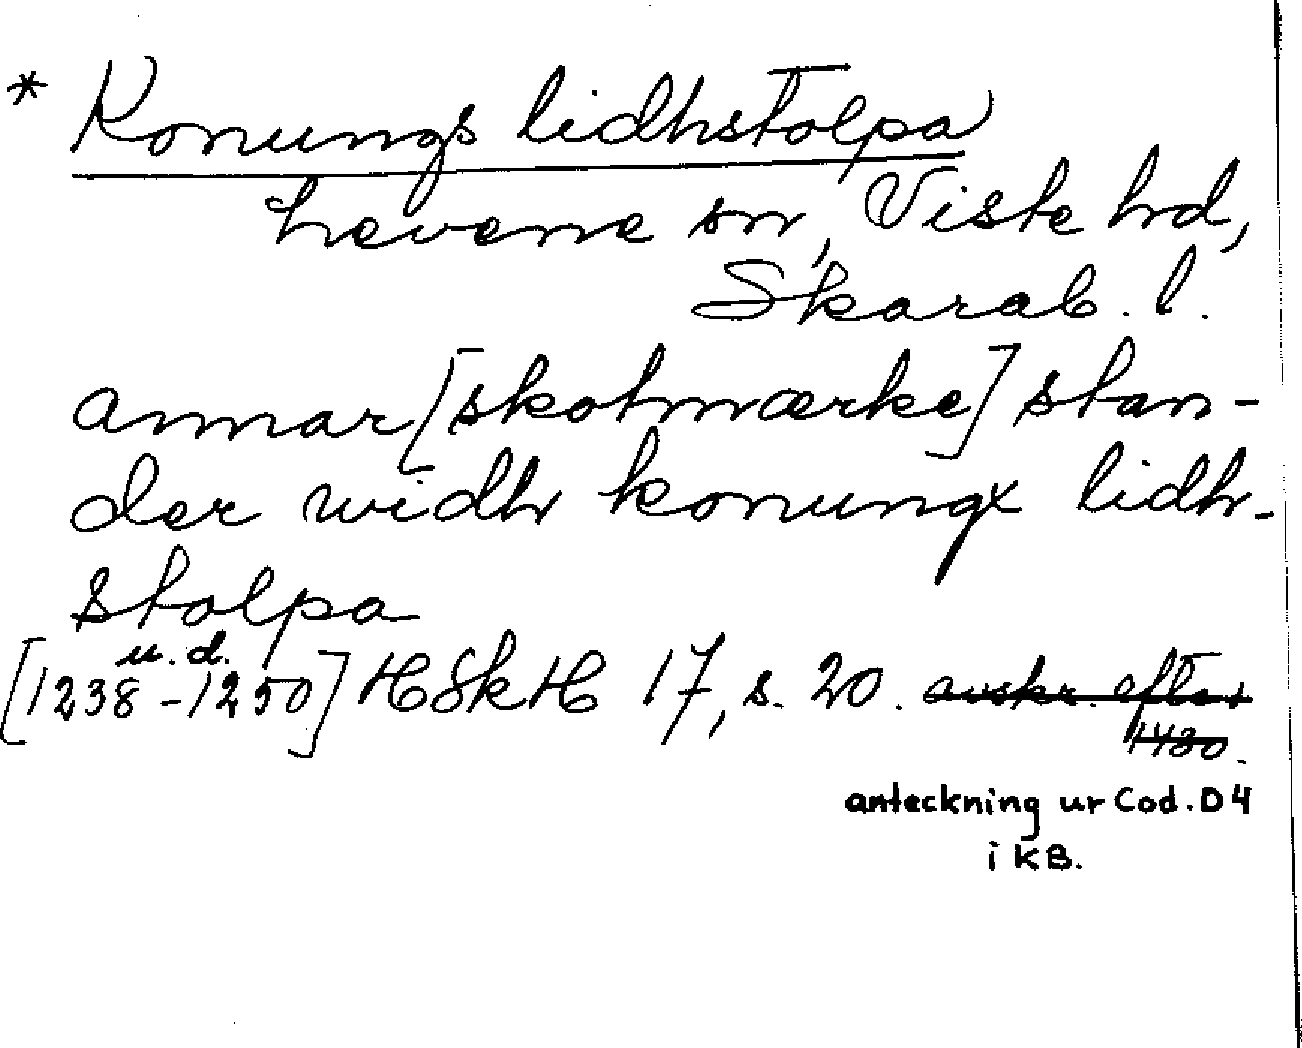 * Konungs lidhstolpa
Levene sn, Viste hd,
Skarab. l.
annar [skotmærke] stan-
der widh konungx lidh-
stolpa
u. d.
[1238-1250] HSkH 17, s. 20. avskr. efter
1430.
anteckning ur Cod. D4
i KB.